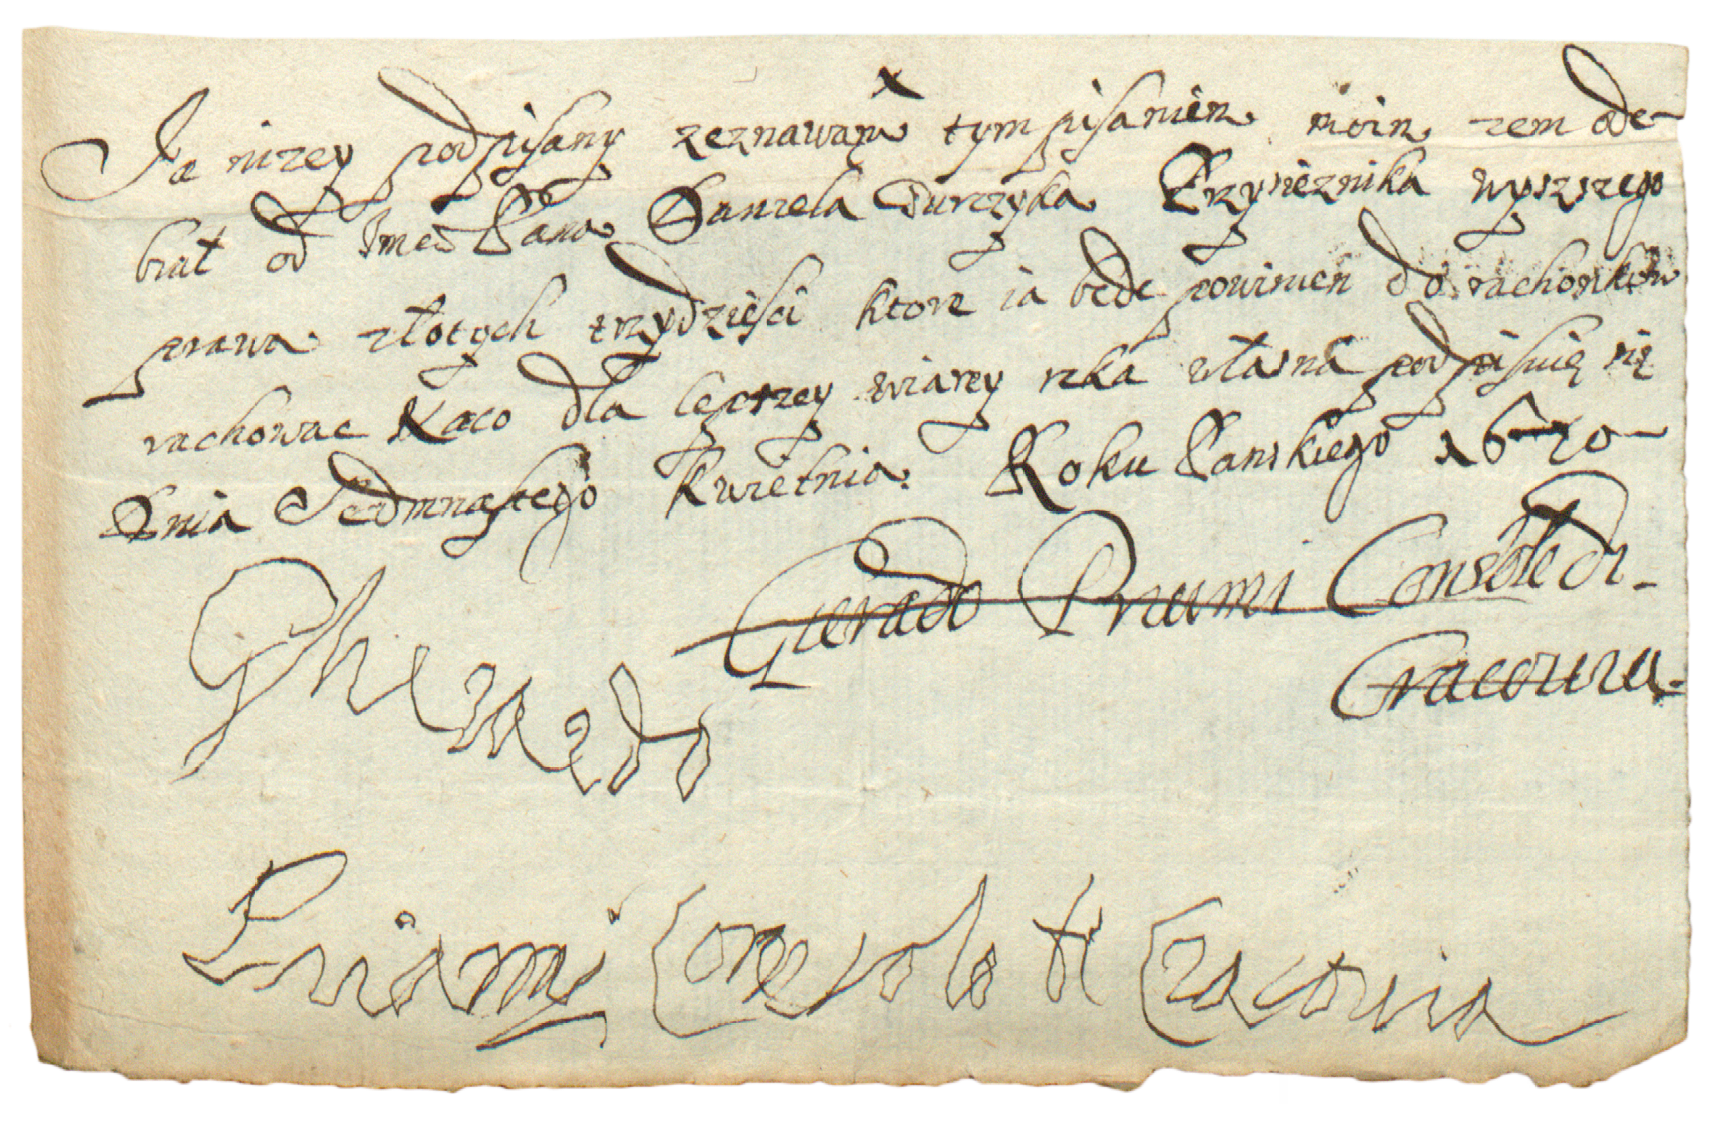 Ja nizey podpisany zeznawam tym pisaniem moim zem ode-
brał od Jmci Pana Daniela Turczyka Przysieznika wyszszego
prawa złotych trzydziesci ktore ia bede powinien do rachonkow
rachowac Naco dla lepszey wiarey reka własna podpisuię się
Dnia Sedmnastego Kwietnia Roku Panskiego 1670
Gierado Priami Console di
Cracouia
Gherardo
Priami Consolo di Cracouia